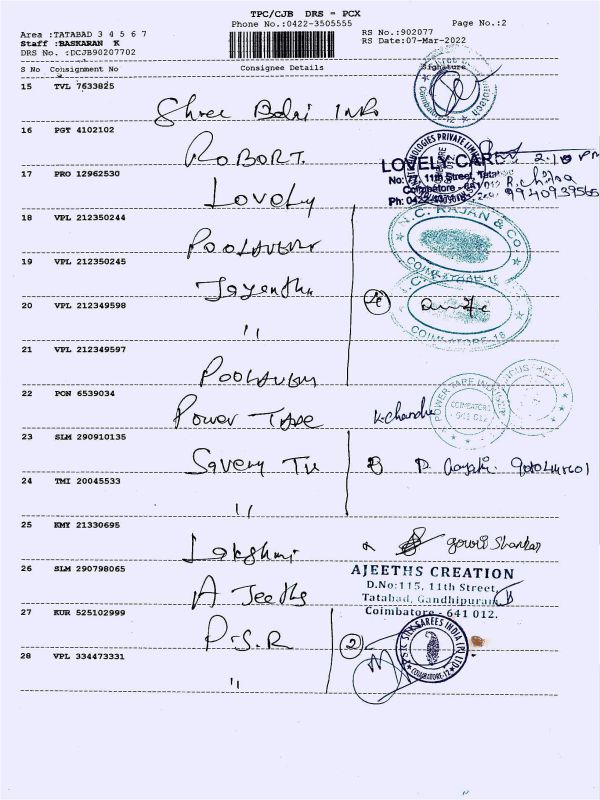 TPC/CJB DRS - PCX
Phone No.:0422-3505555
Page No.:2
Area :TATABAD 3 4 5 6 7
RS No.:902077
Staff :BASKARAN K
RS Date:07-Mar-2022
DRS No. :DCJB90207702
S No Consignment No Consignee Details Signature
15 TVL 7633825
Shree Balaji Info
16 PGT 4102102
ROBORT.
17 PRO 12962530
Lovely
LOVELY CARD
No: 77, 11th Street, Tatabad
Coimbatore - 641 012
Ph: 0422
2.10 PM
R. Chitra
9940939565
18 VPL 212350244
POOLAVENI
V.C. RAJAN & CO
COIMBATORE-18
19 VPL 212350245
Jayentha
20 VPL 212349598
"
4
COIMBATORE-18
21 VPL 212349597
POOLAVENI
22 PON 6539034
Power TAPE
K. Chandu
POWER TAPE INDUSTRIES
COIMBATORE
641 012
23 SLM 290910135
24 TMI 20045533
"
25 KMY 21330695
Lakshmi
gowri Shankar
26 SLM 290798065
A Jeeths
AJEETHS CREATION
D.No:115, 11th Street,
Tatabad, Gandhipuram,
Coimbatore - 641 012.
27 KUR 525102999
P.S.R
2
P.S.R. SILK SAREES INDIA (P) LTD
COIMBATORE-12
28 VPL 334473331
"